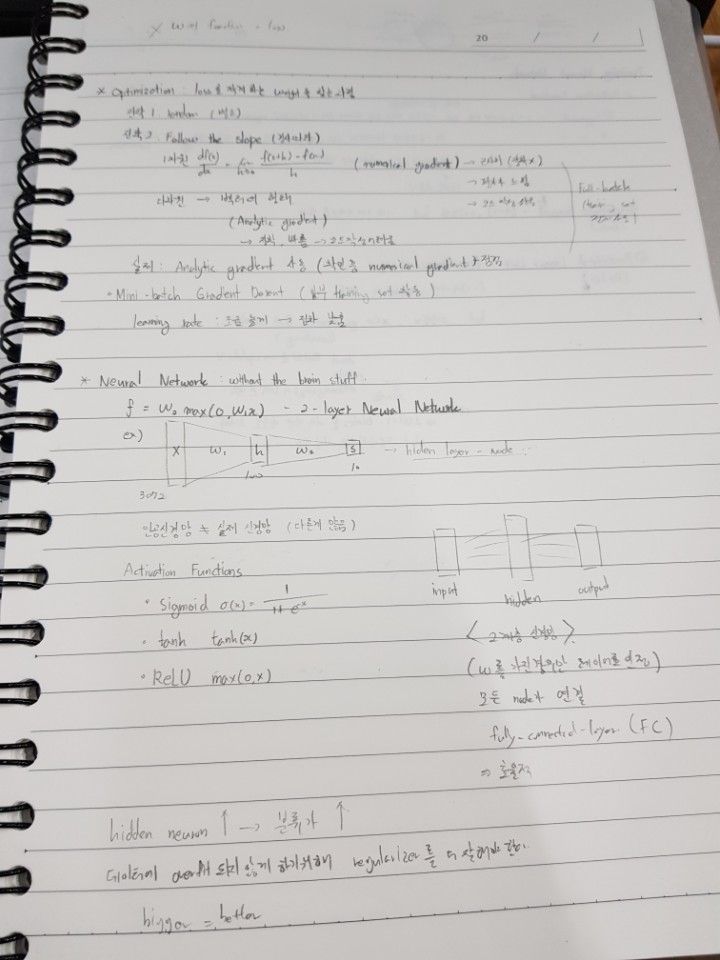 * W의 function = loss
20 / /
* Optimization : loss를 최저 하는 weight를 찾는 과정
전략 1. random (별로)
전략 2. Follow the slope (경사하강)
1차원 df(x)/dx = lim h→0 f(x+h) - f(x) / h (numerical gradient) → 근사치 (정확x)
→ 평가 느림
→ 코드 작성 쉬움
full-batch
다차원 → 벡터의 형태
(Analytic gradient)
→ 정확, 빠름 → 코드작성 어려움
실제 : Analytic gradient 사용 (확인용 numerical gradient)
• Mini-batch Gradient Descent (일부 training set 활용)
learning rate : 조금 높게 → 점차 낮춤
* Neural Network : without the brain stuff.
f = W₂ max(0, W₁x) - 2-layer Neural Network
ex) X W₁ h W₂ S → hidden layer - node
3072 100 10
인공신경망 ≠ 실제 신경망 (다른게 많음)
input hidden output
Activation Functions
• Sigmoid σ(x) = 1 / 1+e⁻ˣ
• tanh tanh(x)
• ReLU max(0,x)
< 2계층 신경망 >
(W를 가진경우만 레이어로 인정)
모든 node가 연결
fully-connected-layer (FC)
⇒ 효율적
hidden neuron ↑ → 분류가 ↑
데이터에 overfit 되지 않게 하기위해 regularizer를 더 잘해야 한다.
bigger = better